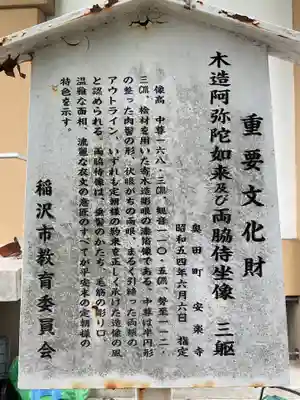 重要文化財
木造阿弥陀如来及び両脇侍坐像 三躯
奥田町 安楽寺
昭和五四年六月六日 指定
像高 中尊一六八・三㎝、観音一一〇・五㎝、勢至一一二・
三㎝、桧材を用いた寄木造彫眼の漆箔像である。中尊は半円形
の整った肉髻の形、伏眼がちの両眼、まろく引締った両頬の
アウトライン、いずれも定朝様の約束を正しくうけた造像の風
と認められる。両脇侍像は、垂髻のかたち、毛筋の彫り口、
温雅な面相、流麗な衣文の意匠のすべてが平安末の定朝様の
特色を示す。
稲沢市教育委員会